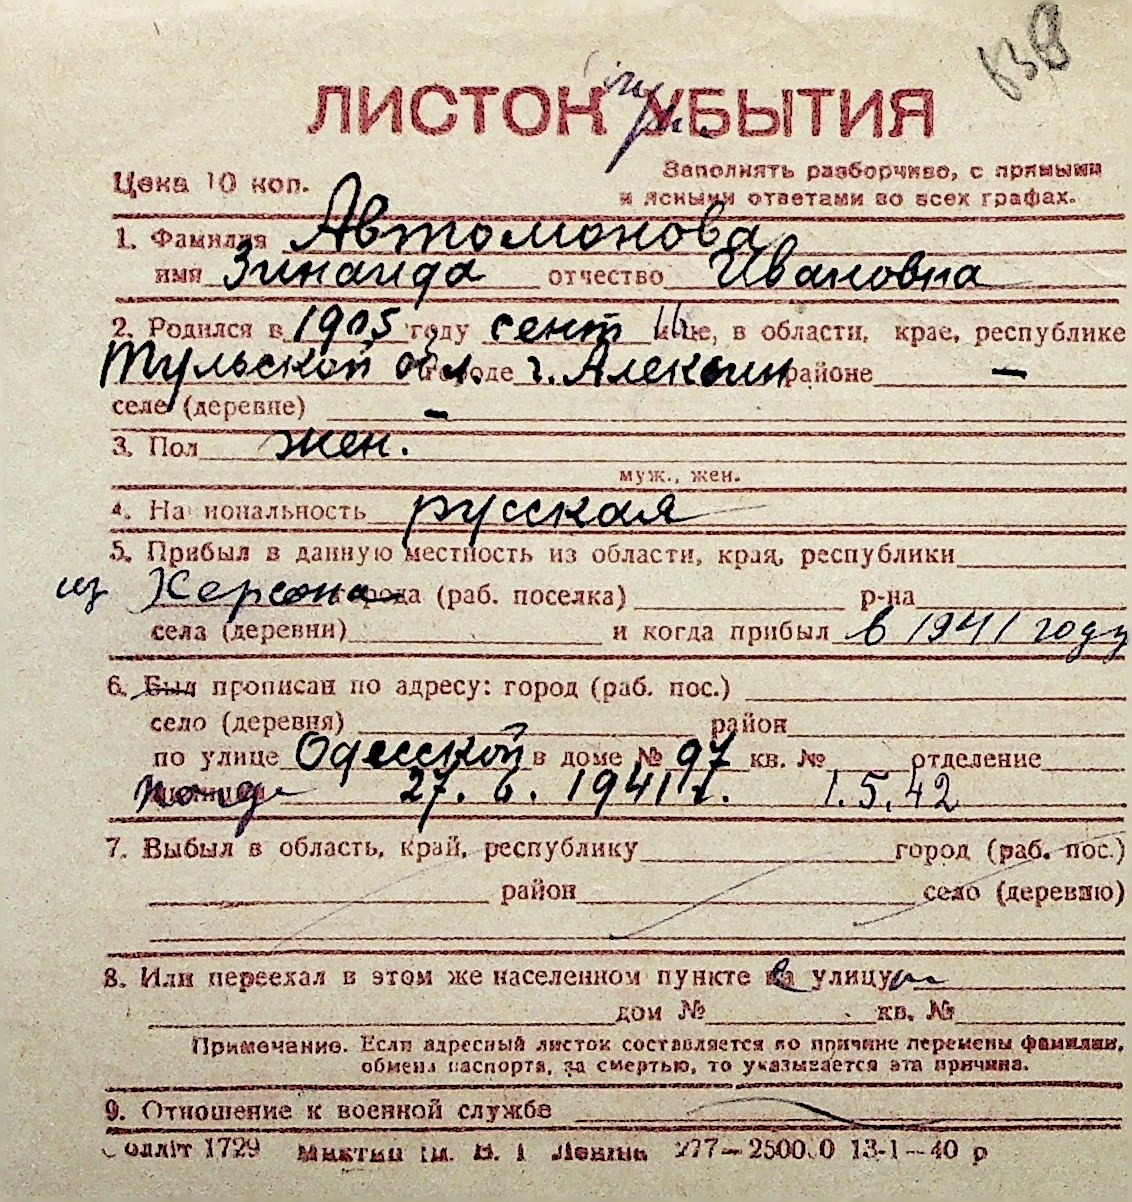 ЛИСТОК УБЫТИЯ
Цена 10 коп.
Заполнять разборчиво, с прямыми
и ясными ответами во всех графах.
1. Фамилия Автомонова
имя Зинаида отчество Ивановна
2. Родился в 1905 году сент м-це, в области, крае, республике
Тульской обл. городе г. Алексин районе —
селе (деревне) —
3. Пол жен.
муж., жен.
4. На иональность русская
5. Прибыл в данную местность из области, края, республики
из Херсона города (раб. поселка) р-на
села (деревни) и когда прибыл в 1941 году
6. Был прописан по адресу: город (раб. пос.)
село (деревня) район
по улице Одесской в доме № 97 кв. № отделение
27. 6. 1941 г. 1.5.42
7. Выбыл в область, край, республику город (раб. пос.)
район село (деревню)
8. Или переехал в этом же населенном пункте улицу
дом № кв. №
Примечание. Если адресный листок составляется по причине перемены фамилии,
обмена паспорта, за смертью, то указывается эта причина.
9. Отношение к военной службе
1729 277—2500 0 13-1—40 р